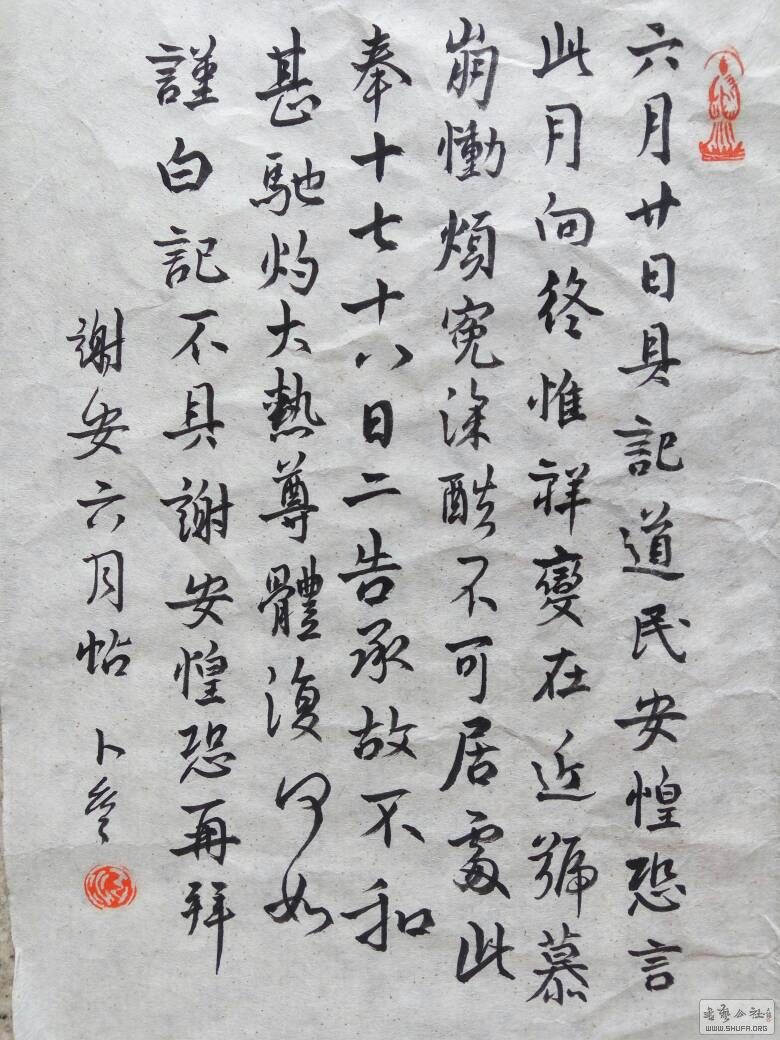 六月廿日具記道民安惶恐言
此月向終惟祥變在近號慕
崩慟煩冤深酷不可居處此
奉十七十八日二告承故不和
甚馳灼大熱尊體復何如
謹白記不具謝安惶恐再拜
謝安六月帖 卜
书艺公社
WWW.SHUFA.ORG